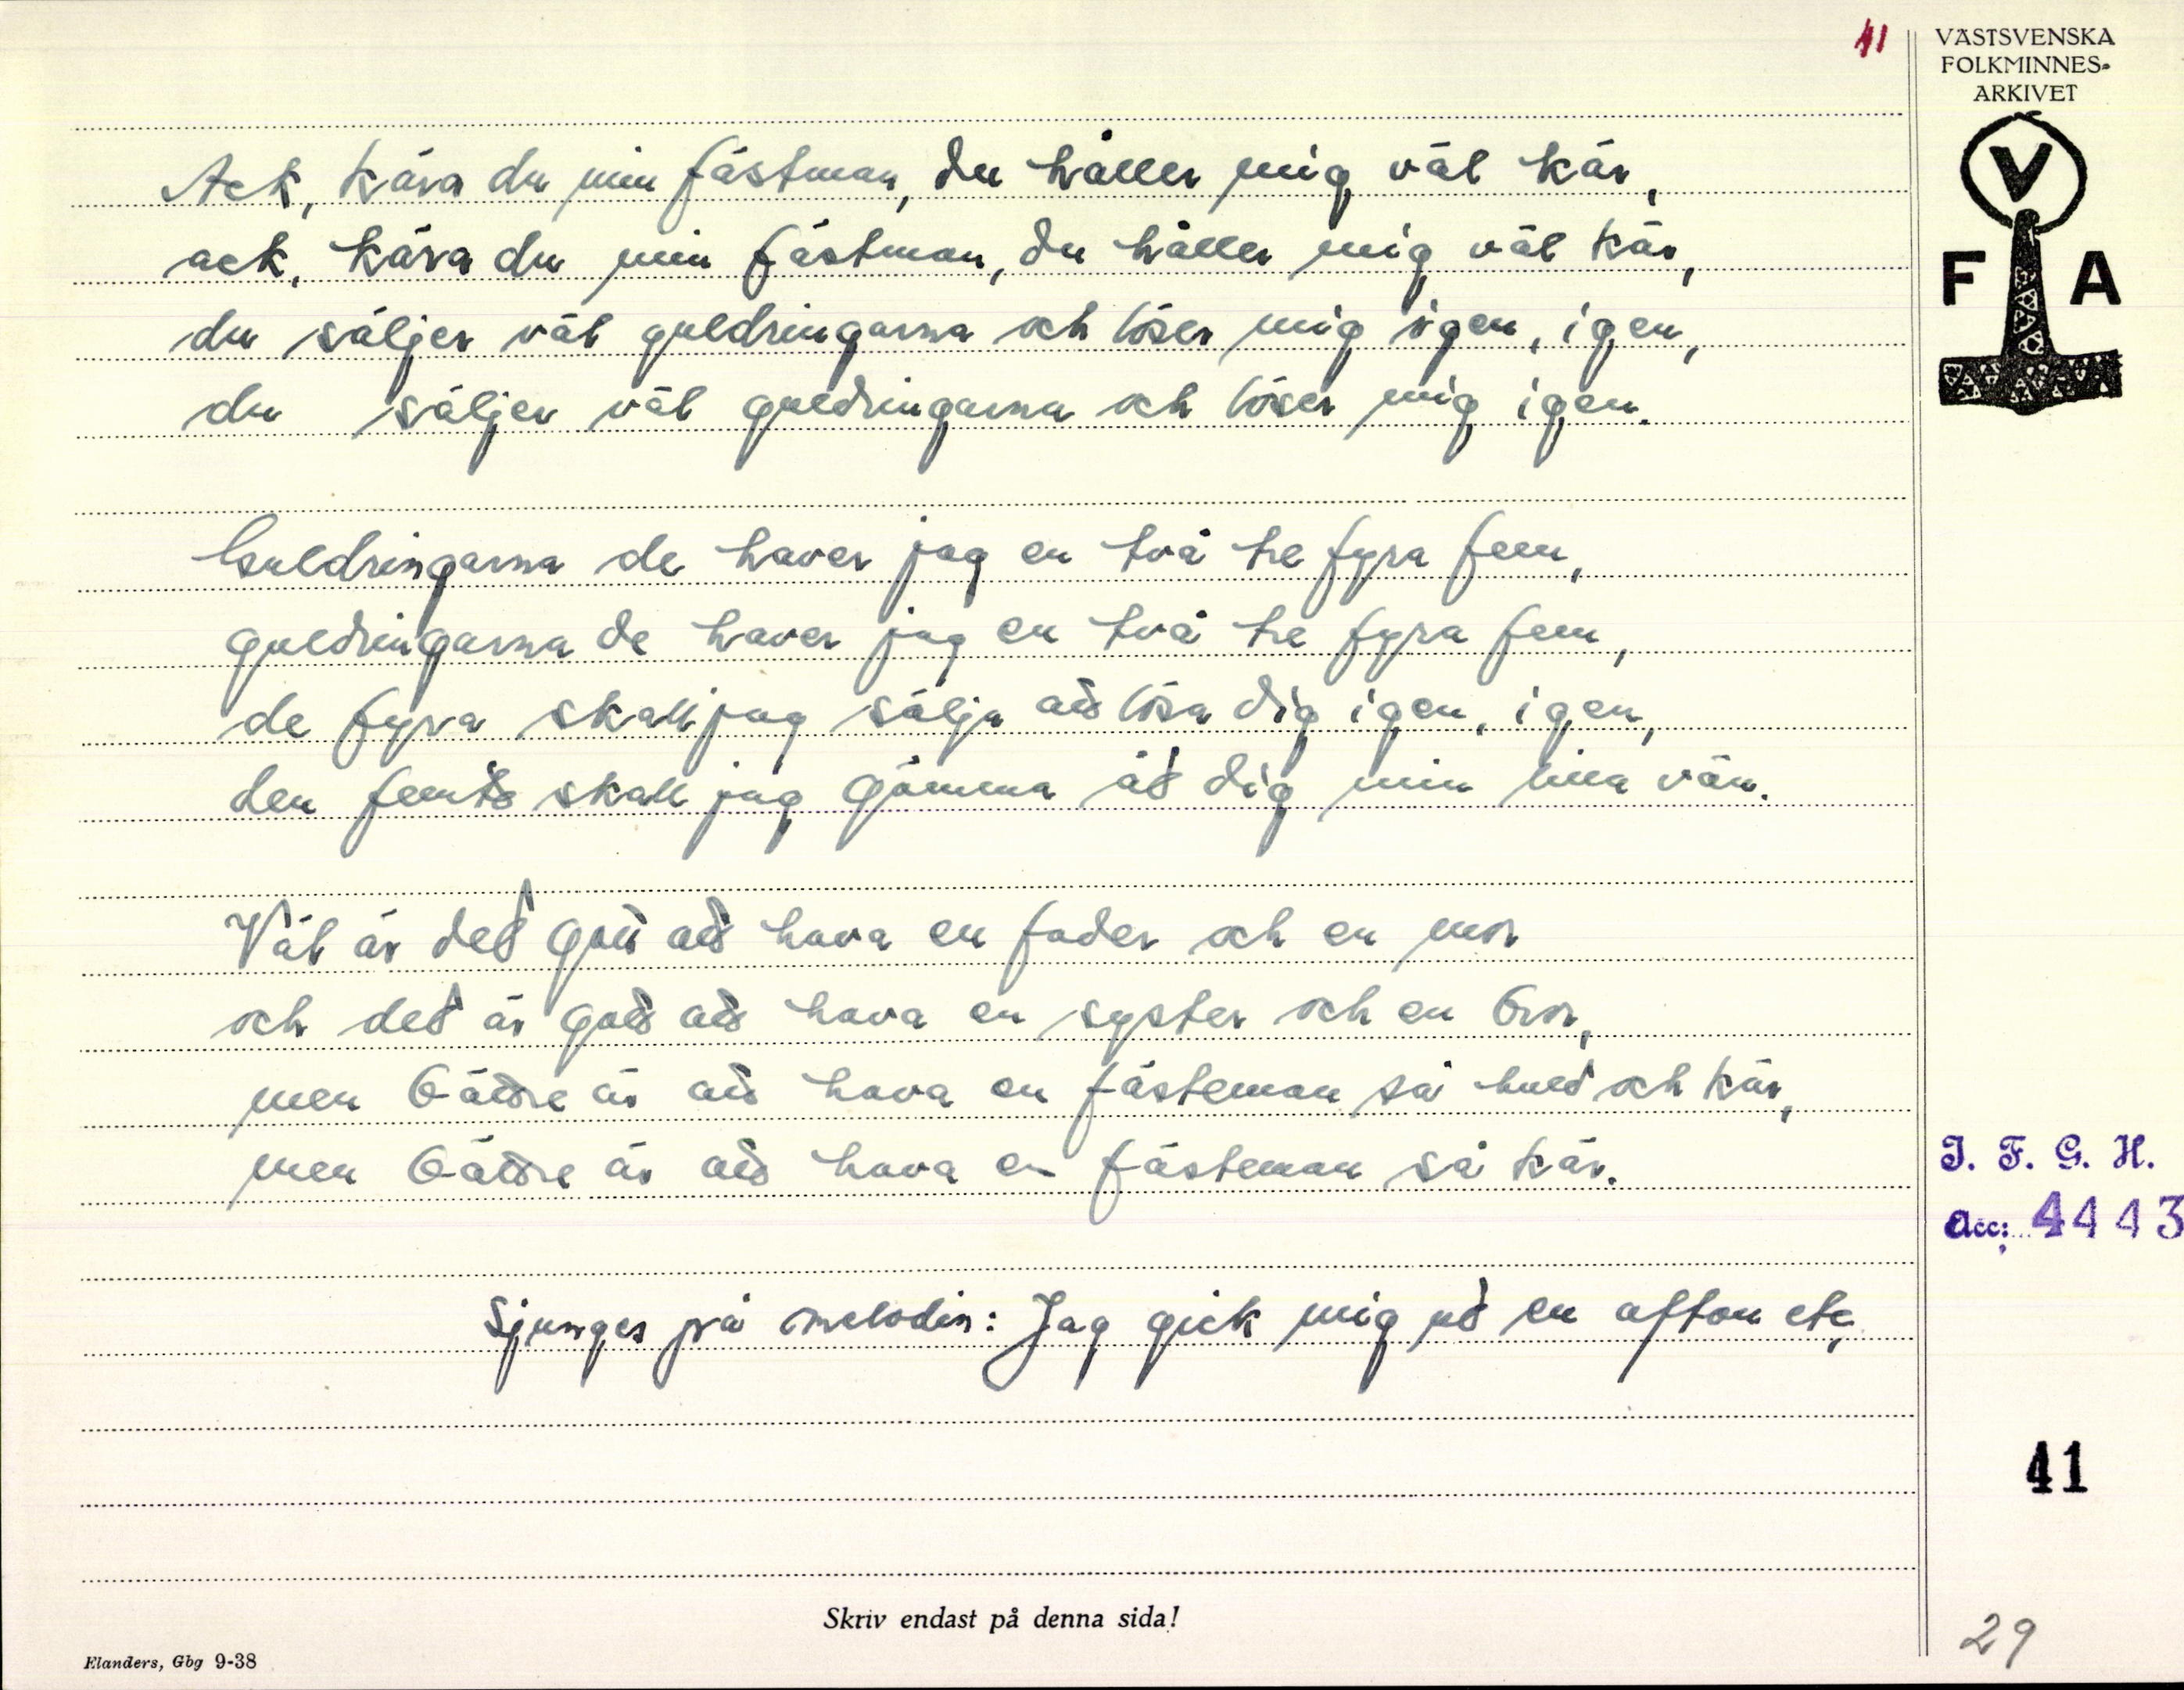 41
VÄSTSVENSKA
FOLKMINNES-
ARKIVET
V
F A
Ack, kära du min fästman, du håller mig väl kär,
ack, kära du min fästman, du håller mig väl kär,
du säljer väl guldringarna och löser mig igen, igen,
du säljer väl guldringarna och löser mig igen.
Guldringarna de haver jag en två tre fyra fem,
guldringarna de haver jag en två tre fyra fem,
de fyra skall jag sälja att lösa dig igen, igen,
den femte skall jag gömma åt dig min lilla vän.
Väl är det gott att hava en fader och en mor
och det är gott att hava en syster och en bror,
men bättre är att hava en fästeman så huld och kär,
men bättre är att hava en fästeman så kär.
Sjunges på melodin: Jag gick mig ut en afton etc,
I. F. G. H.
Acc: 4443
41
Skriv endast på denna sida!
Elanders, Gbg 9-38
29